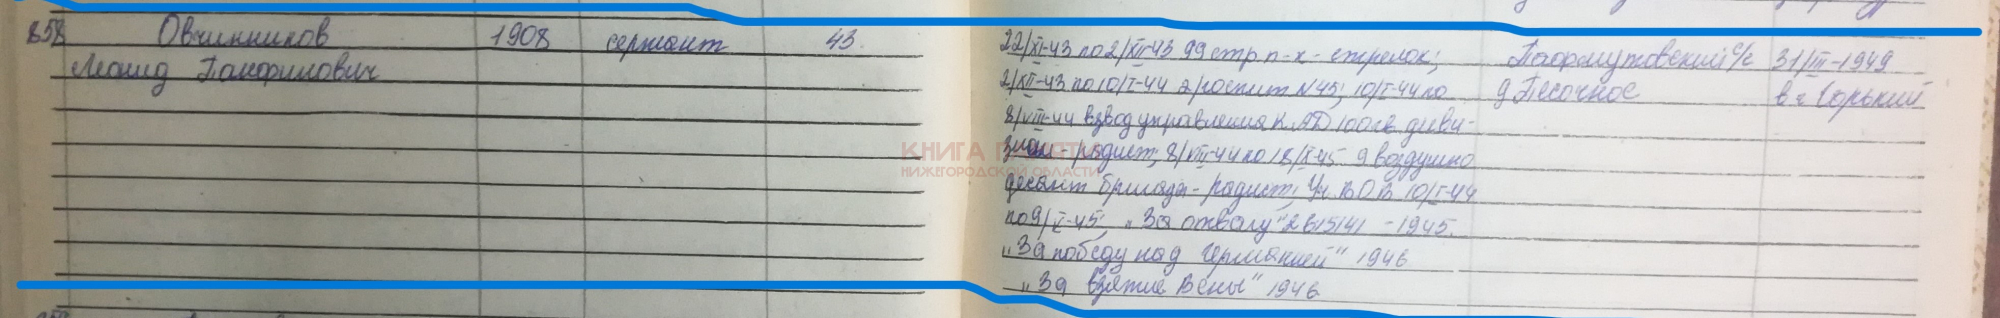 858 Овчинников 1908 сержант 43.
Леонид Панфилович
22/XI-43 по 2/XII-43 99 стр. п-к - стрелок;
2/XII-43 по 10/I-44 э/госпит N 45; 10/I-44 по
8/VIII-44 взвод управления КАД 100 гв. диви-
зии - радист; 8/VIII-44 по 18/X-45 9 воздушно
десант бригады - радист; Уч. ВОВ 10/I-44
по 9/V-45; „За отвагу" 2615141 - 1945.
„За победу над Германией" 1946
„За взятие Вены" 1946
Пафомутовский с/с
д Песочное
31/III-1949
в г Горький
КНИГА ПАМЯТИ
НИЖЕГОРОДСКОЙ ОБЛАСТИ